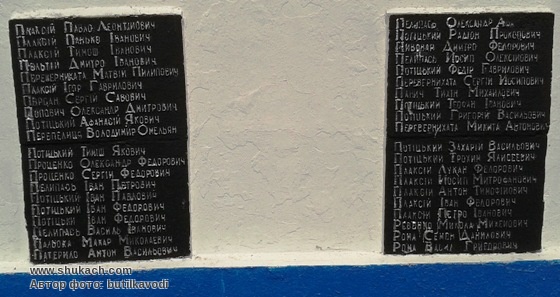 Плаксій Павло Леонтійович
Плаксій Панько Іванович
Плаксій Тимош Іванович
Пультай Дмитро Іванович
Перевернихата Матвій Пилипович
Плаксій Ігор Гаврилович
Пирдан Сергій Савович
Попович Олександр Дмитрович
Потіцький Афанасій Якович
Перепелиця Володимир Омельян
Потіцький Тимош Якович
Проценко Олександр Федорович
Проценко Сергій Федорович
Пелипась Іван Петрович
Потіцький Іван Павлович
Потіцький Іван Федорович
Потіцький Іван Федорович
Пелипась Василь Іванович
Пальока Макар Миколаєвич
Патерило Антон Васильович
Пелипась Олександр
Потіцький Радіон Прокопович
Пивовар Дмитро Федорович
Пелипась Йосип Олексійович
Потіцький Федір Гаврилович
Перевернихата Сергій Йосипович
Панич Тихін Михайлович
Потіцький Теофан Іванович
Потіцький Григорій Васильович
Перевернихата Микита Антонович
Потіцький Захарій Васильович
Потіцький ТрохимЯлисеєвич
Плаксій Лукан Федорович
Плаксій Йосип Митрофанович
Плаксій Антон Тимофійович
Плаксій Іван Федорович
Плаксій Петро Іванович
Ревенко Микола Мілєнович
Рома Семен Данилович
Рома Василь Григорович
www.shukach.com
Автор фото: butilkavodi